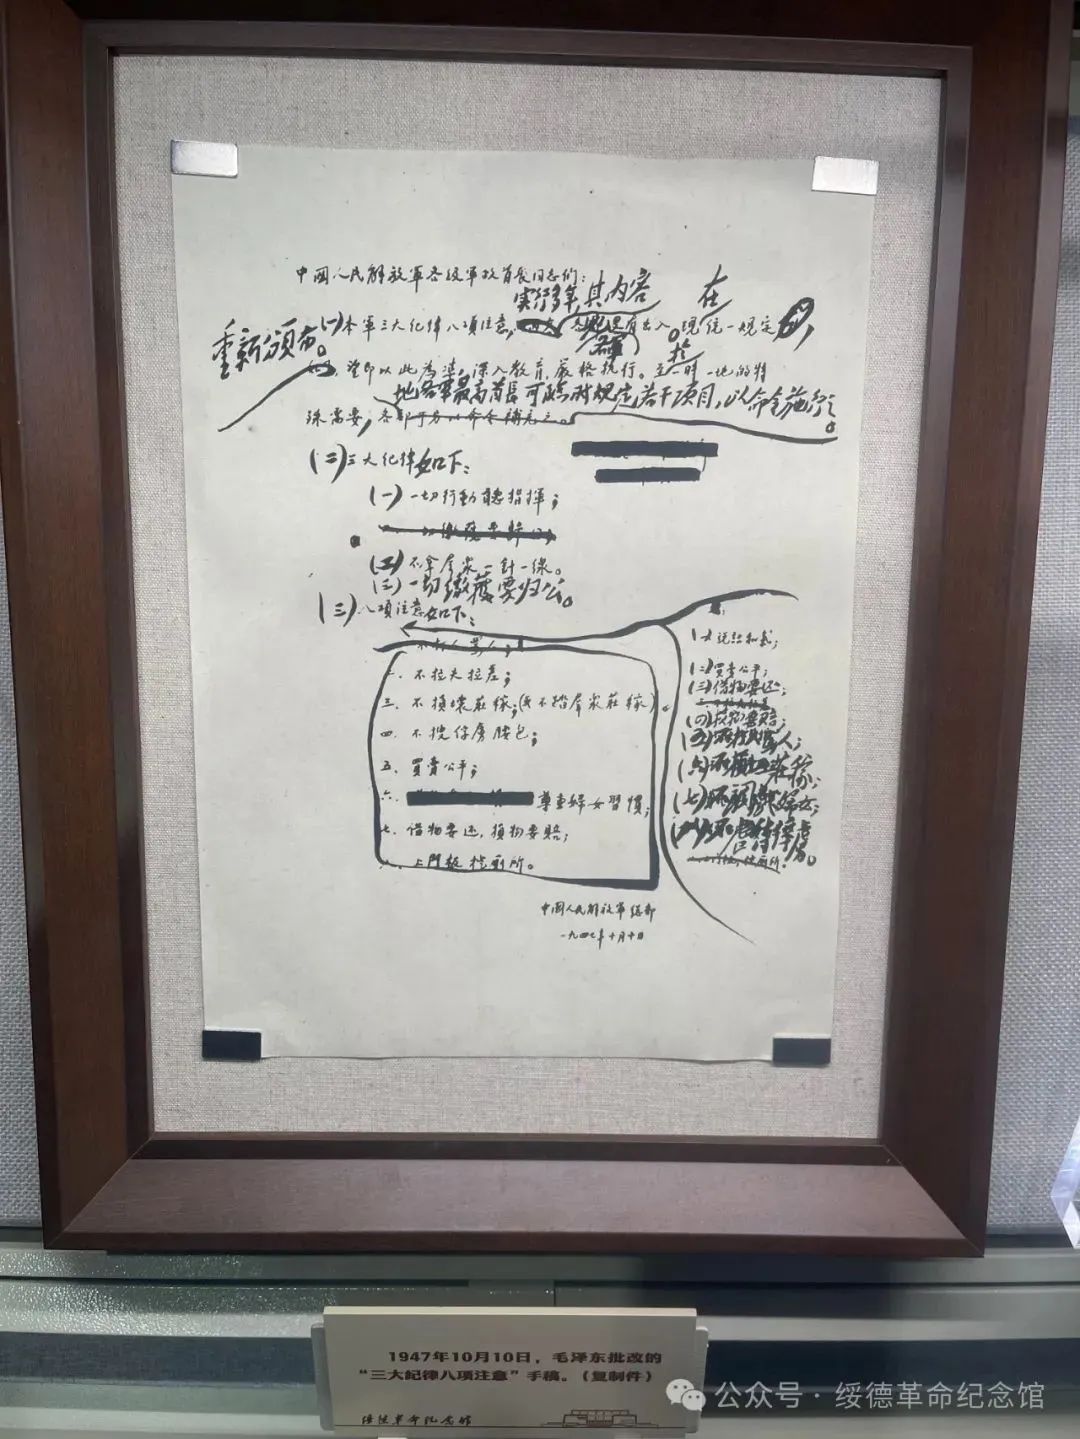 中國人民解放軍各級軍政首長同志們：
實行多年，其内容 在
(一)本軍三大紀律八項注意， 各地 還有出入。現統一規定
重新頒布。
各軍
望即以此為準，深入教育，嚴格執行。至 一時一地的特
地各軍最高首長可 規定若干項目，以命令施行之。
殊需要，各部可另以命令補充之。
(二)三大紀律如下：
(一)一切行動聽指揮；
(二)不拿群衆一針一線。
(三)一切繳獲要归公。
(三)八項注意如下：
不打人罵人；
二、不拉夫拉差；
三、不損壞莊稼；(更不踏群衆莊稼)。
四、不搜俘虜腰包；
五、買賣公平；
六、尊重婦女習慣；
七、借物要还，損物要賠；
上門板 挖厕所。
(一)说話和氣；
(二)買賣公平；
(三)借物要还；
(四)损物要賠；
(五)不打人罵人；
(六)不損壞莊稼；
(七)不調戲婦女；
(八)不虐待俘虜。
中國人民解放軍總部
一九四七年十月十日
1947年10月10日，毛泽东批改的
“三大纪律八项注意”手稿。（复制件）
绥德革命纪念馆
公众号·绥德革命纪念馆